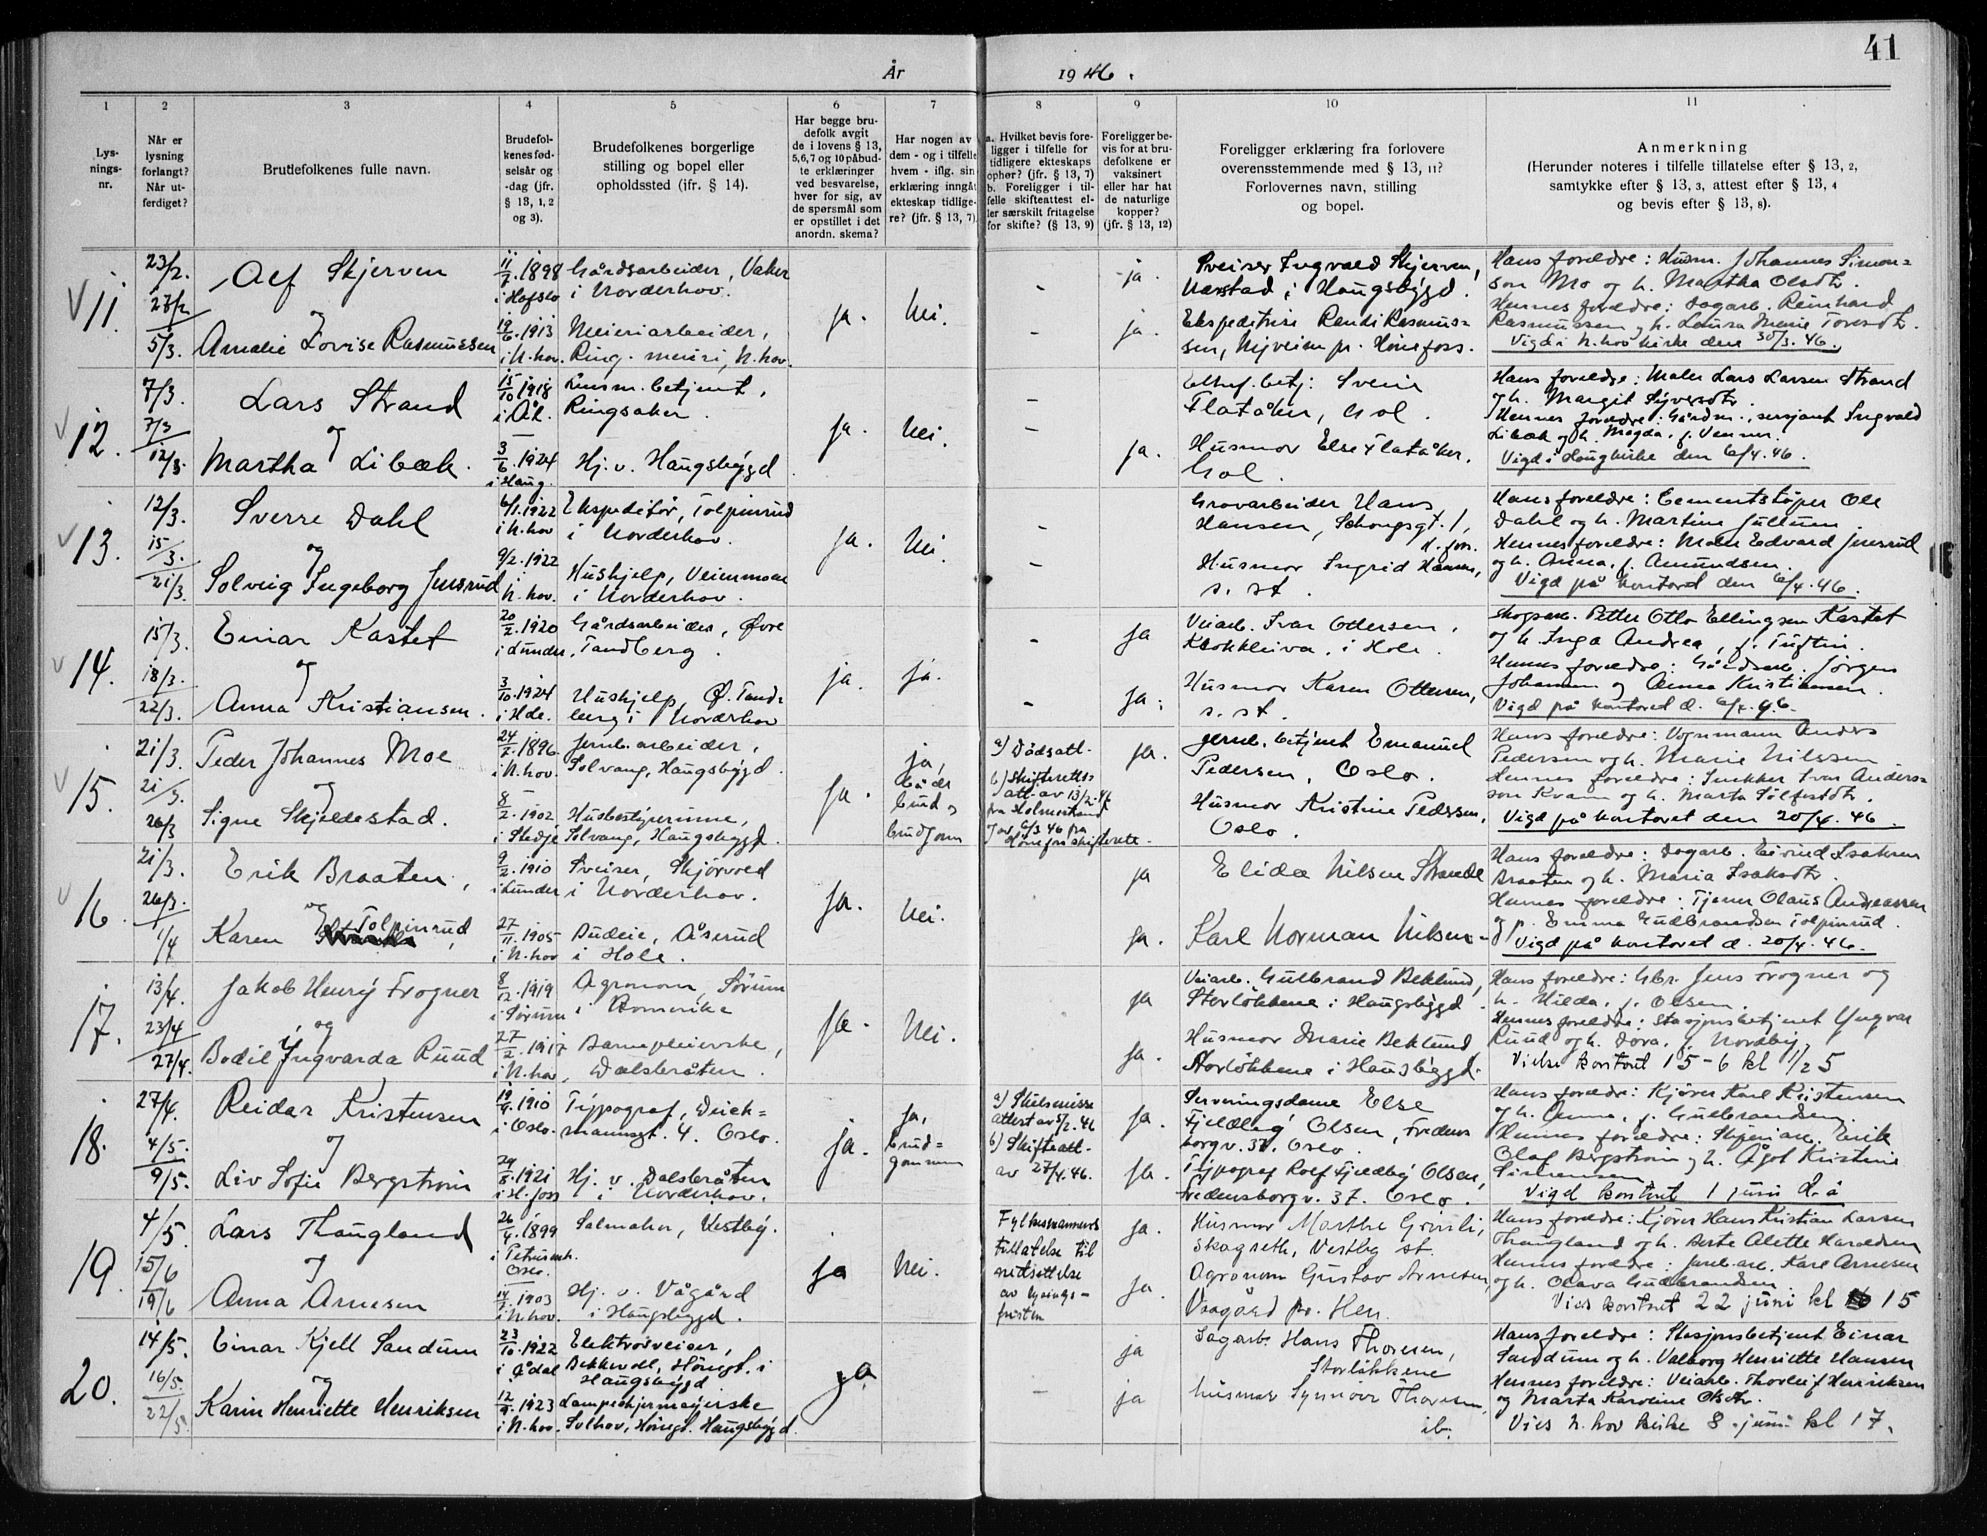 41
År 1946.
1 2 3 4 5 6 7 8 9 10 11
Lys-
nings-
nr.
Når er
lysning
forlangt?
Når ut-
ferdiget?
Brudefolkenes fulle navn.
Brudefol-
kenes fød-
selsår og
-dag (jfr.
§ 13, 1, 2
og 3).
Brudefolkenes borgerlige
stilling og bopel eller
opholdssted (jfr. § 14).
Har begge bru-
defolk avgit
de i lovens § 13,
5,6,7 og 10 påbud-
te erklæringer
ved besvarelse,
hver for sig, av
de spørsmål som
er opstillet i det
anordn. skema?
Har nogen av
dem - og i tilfelle
hvem - iflg. sin
erklæring inngåt
ekteskap tidlige-
re? (jfr. § 13, 7).
a. Hvilket bevis fore-
ligger i tilfelle for
tidligere ekteskaps
ophør? (jfr. § 13, 7)
b. Foreligger i til-
felle skifteattest el-
ler særskilt fritagelse
for skifte? (§ 13, 9)
Foreligger be-
vis for at bru-
defolkene er
vaksinert
eller har hat
de naturlige
kopper?
(jfr. § 13, 12)
Foreligger erklæring fra forlovere
overensstemmende med § 13, 11?
Forlovernes navn, stilling
og bopel.
Anmerkning
(Herunder noteres i tilfelle tillatelse efter § 13, 2,
samtykke efter § 13, 3, attest efter § 13, 4
og bevis efter § 13, 8).
V 11.
23/2.
27/2
5/3.
Alf Skjerven
og
Amalie Lovise Rasmussen
11/7.1898
i Hofslo
19/6.1913
i N.hov.
Gårdsarbeider, Vaker
i Norderhov.
Meieriarbeider,
Ring. meieri, N.hov.
ja.
Nei.
-
-
ja.
ja.
Sveiser Ingvald Skjerven,
Harstad, i Haugsbygd.
Ekspeditrise Randi Rasmus-
sen, Nyveien pr. Hönefoss.
Hans foreldre: Husm. Johannes Simon-
son Mo og h. Martha Olsdtr.
Hennes foreldre: Dagarb. Reinhard
Rasmussen og h. Laura Marie Toresdtr.
Vigd i N.hov kirke den 30/3.46.
V 12.
7/3.
7/3
12/3.
Lars Strand
og
Martha Libæk.
15/10 1918
i Ål.
3/6.1924
i Haug.
Lensm.betjent,
Ringsaker.
Hj. v. Haugsbygd
ja.
Nei.
-
-
ja.
betj: Svein
Flatåker, Gol.
Husmor Else Flatåker.
Gol.
Hans foreldre: Maler Lars Larsen Strand
og h. Margit Syversdtr.
Hennes foreldre: Gårdm., sersjant Ingvald
Libæk og h. Magda, f. Venner.
Vigd i Haug kirke den 6/4.46.
V 13.
12/3.
15/3.
21/3.
Sverre Dahl
og
Solveig Ingeborg Jensrud
6/1.1922
i N.hov
9/2.1922
i N.hov.
Ekspeditör, Tolpinrud
i Norderhov.
Hushjelp, Veienmoen
i Norderhov.
ja.
Nei.
-
-
Gravarbeider Hans
Hansen, Schongsgt. 1,
H.foss.
Husmor Ingrid Hansen,
s. st.
Hans foreldre: Cementstöper Ole
Dahl og h. Martine Jullum.
Hennes foreldre: Maler Edvard Jensrud
og h. Anna, f. Amundsen.
Vigd på kontoret den 6/4.46.
V 14.
15/3.
18/3.
22/3.
Einar Kastet
og
Anna Kristiansen.
20/2.1920
i Lunder.
3/10.1924
i Hole.
Gårdsarbeider, Övre
Tandberg.
Hushjelp, Ö. Tand-
berg i Norderhov
ja.
ja.
-
-
ja
ja.
Veiarb. Ivar Ottersen,
Klokkleiva, i Hole.
Husmor Karen Ottersen,
s. st.
Skogsarb. Petter Otto Ellingsen Kastet
og h. Inga Andrea, f. Tuftin.
Hennes foreldre: Gårdsarb. Jörgen
Johansen og Anna Kristiansen.
Vigd på kontoret d. 6/4.46.
V 15.
21/3.
21/3.
26/3
Peder Johannes Moe
og
Signe Skjeldestad.
24/7.1896.
i N.hov.
8/2.1902
i Stedje
Jernb.arbeider,
Solvang, Haugsbygd.
Husbestyrerinne,
Solvang, Haugsbygd.
ja.
ja,
både
brud og
brudgom
a) Dödsatt.
b) Skifteretts-
att. av 13/2-46
fra Holmestrand
og av 6/3 46 fra
Hönefoss skifterett.
ja.
Jernb. betjent Emanuel
Pedersen, Oslo.
Husmor Kristine Pedersen,
Oslo.
Hans foreldre: Vognmann Anders
Pedersen og h. Marie Nilssen
Hennes foreldre: Snekker Ivar Anders-
son Kvam og h. Marta Sölfestdtr.
Vigd på kontoret den 20/4.46.
V 16.
21/3.
26/3.
1/4
Erik Braaten,
og
Karen Tolpinrud,
9/2.1910
i Lunder
27/11.1905
i N.hov
Sveiser, Skjörvold
i Norderhov.
Budeie, Åserud
i Hole.
ja.
Nei.
ja
ja.
Elida Nilsen Strande
Karl Norman Nilsen
Hans foreldre: Dagarb. Eivind Isaksen
Braaten og h. Maria Isaksdtr.
Hennes foreldre: Tjener Olaus Andreassen
og p. Emma Gudbrandsen Tolpinrud.
Vigd på kontoret d. 20/4.46.
17.
13/4.
23/4
27/4.
Jakob Henry Frogner
og
Bodil Yngvarda Ruud
8/12.1919
i Sörum
27/2.1917
i N.hov
Agronom, Sörum
i Romerike
Barnepleierske,
Dalsbråten.
ja.
Nei.
ja
ja.
Veiarb. Gulbrand Beklund,
Storlökkene i Haugsbygd
Husmor Marie Beklund
Storlökkene i Hausbygd.
Hans foreldre: Gbr. Jens Frogner og
h. Hilda, f. Olsen.
Hennes foreldre: Stasjonsbetjent Yngvar
Ruud og h. Dora, f. Nordby,
Vielse kontoret 15-6 kl 1/2 5
18.
27/4.
4/5.
9/5.
Reidar Kristensen
og
Liv Sofie Bergström
19/9.1910
i Oslo.
24/8.1921
i H.foss
Typograf, Deich-
mannsgt. 4. Oslo.
Hj. v. Dalsbråten
i Norderhov.
ja.
ja,
brud-
gommen
a) Skilsmisse
attest av 5/2.46
b) Skifteatt.
av 27/4.46.
ja.
ja.
Serveringsdame Else
Fjeldby Olsen, Fredens
borgv. 37, Oslo.
Typograf Rolf Fjeldby Olsen,
Fredensborgv. 37. Oslo.
Hans foreldre: Kjörer Karl Kristensen
og h. Anna, f. Gulbrandsen.
Hennes foreldre: Skjeriarb. Erik
Olaf Bergström og h. Ågot Kristine
Simensen
Vigd kontoret 1 juni d.å
19.
4/5.
15/6
19/6
Lars Thaugland
og
Anna Arnesen
26/4.1899
i Petrusmh.
Oslo.
14/7.1903
i N.hov.
Salmaker, Vestby.
Hj. v. Vågård
i Haugsbygd.
ja
Nei.
Fylkesmannens
tillatelse til
nedsettelse
av lysings-
fristen
ja.
ja.
Husmor Marthe Grinli,
Skogreth, Vestby st.
Agronom Gustav Arnesen,
Vaagård pr. Hen.
Hans foreldre: Kjörer Hans Kristian Larsen
Thaugland og h. Berte Alette Haraldsen
Hennes foreldre: Jernb.arb. Karl Arnesen
og h. Olava Gudbrandsen
Vies kontoret 22 juni kl 15
20.
14/5.
16/5.
22/5.
Einar Kjell Sandum
og
Karin Henriette Henriksen
23/10.1922
i Ådal
12/9.1923
i N.hov.
Elektrosveiser,
Bekkevoll, Höngt. i
Haugsbygd
Lampeskjermsyerske
Solhov, Höngt. Haugsbygd.
ja
-
ja
ja
Sagarb. Hans Thoresen,
Storlökkene
husmor Synnöve Thoresen,
ib.
Hans foreldre: Stasjonsbetjent Einar
Sandum og h. Valborg Henriette Hansen
Hennes foreldre: Veiarb. Thorleif Henriksen
og Marta Karoline Olsdtr.
Vies N.hov kirke 8 juni kl 17.